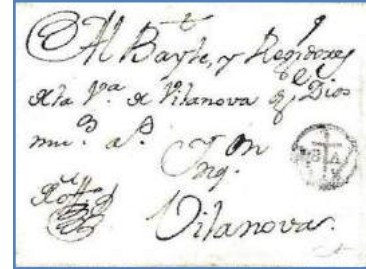 Al Bayle, y Regidores
de la V.ª de Vilanova q.e Dios
mu.s a.s
Ynq.on
Vilanova.
B A